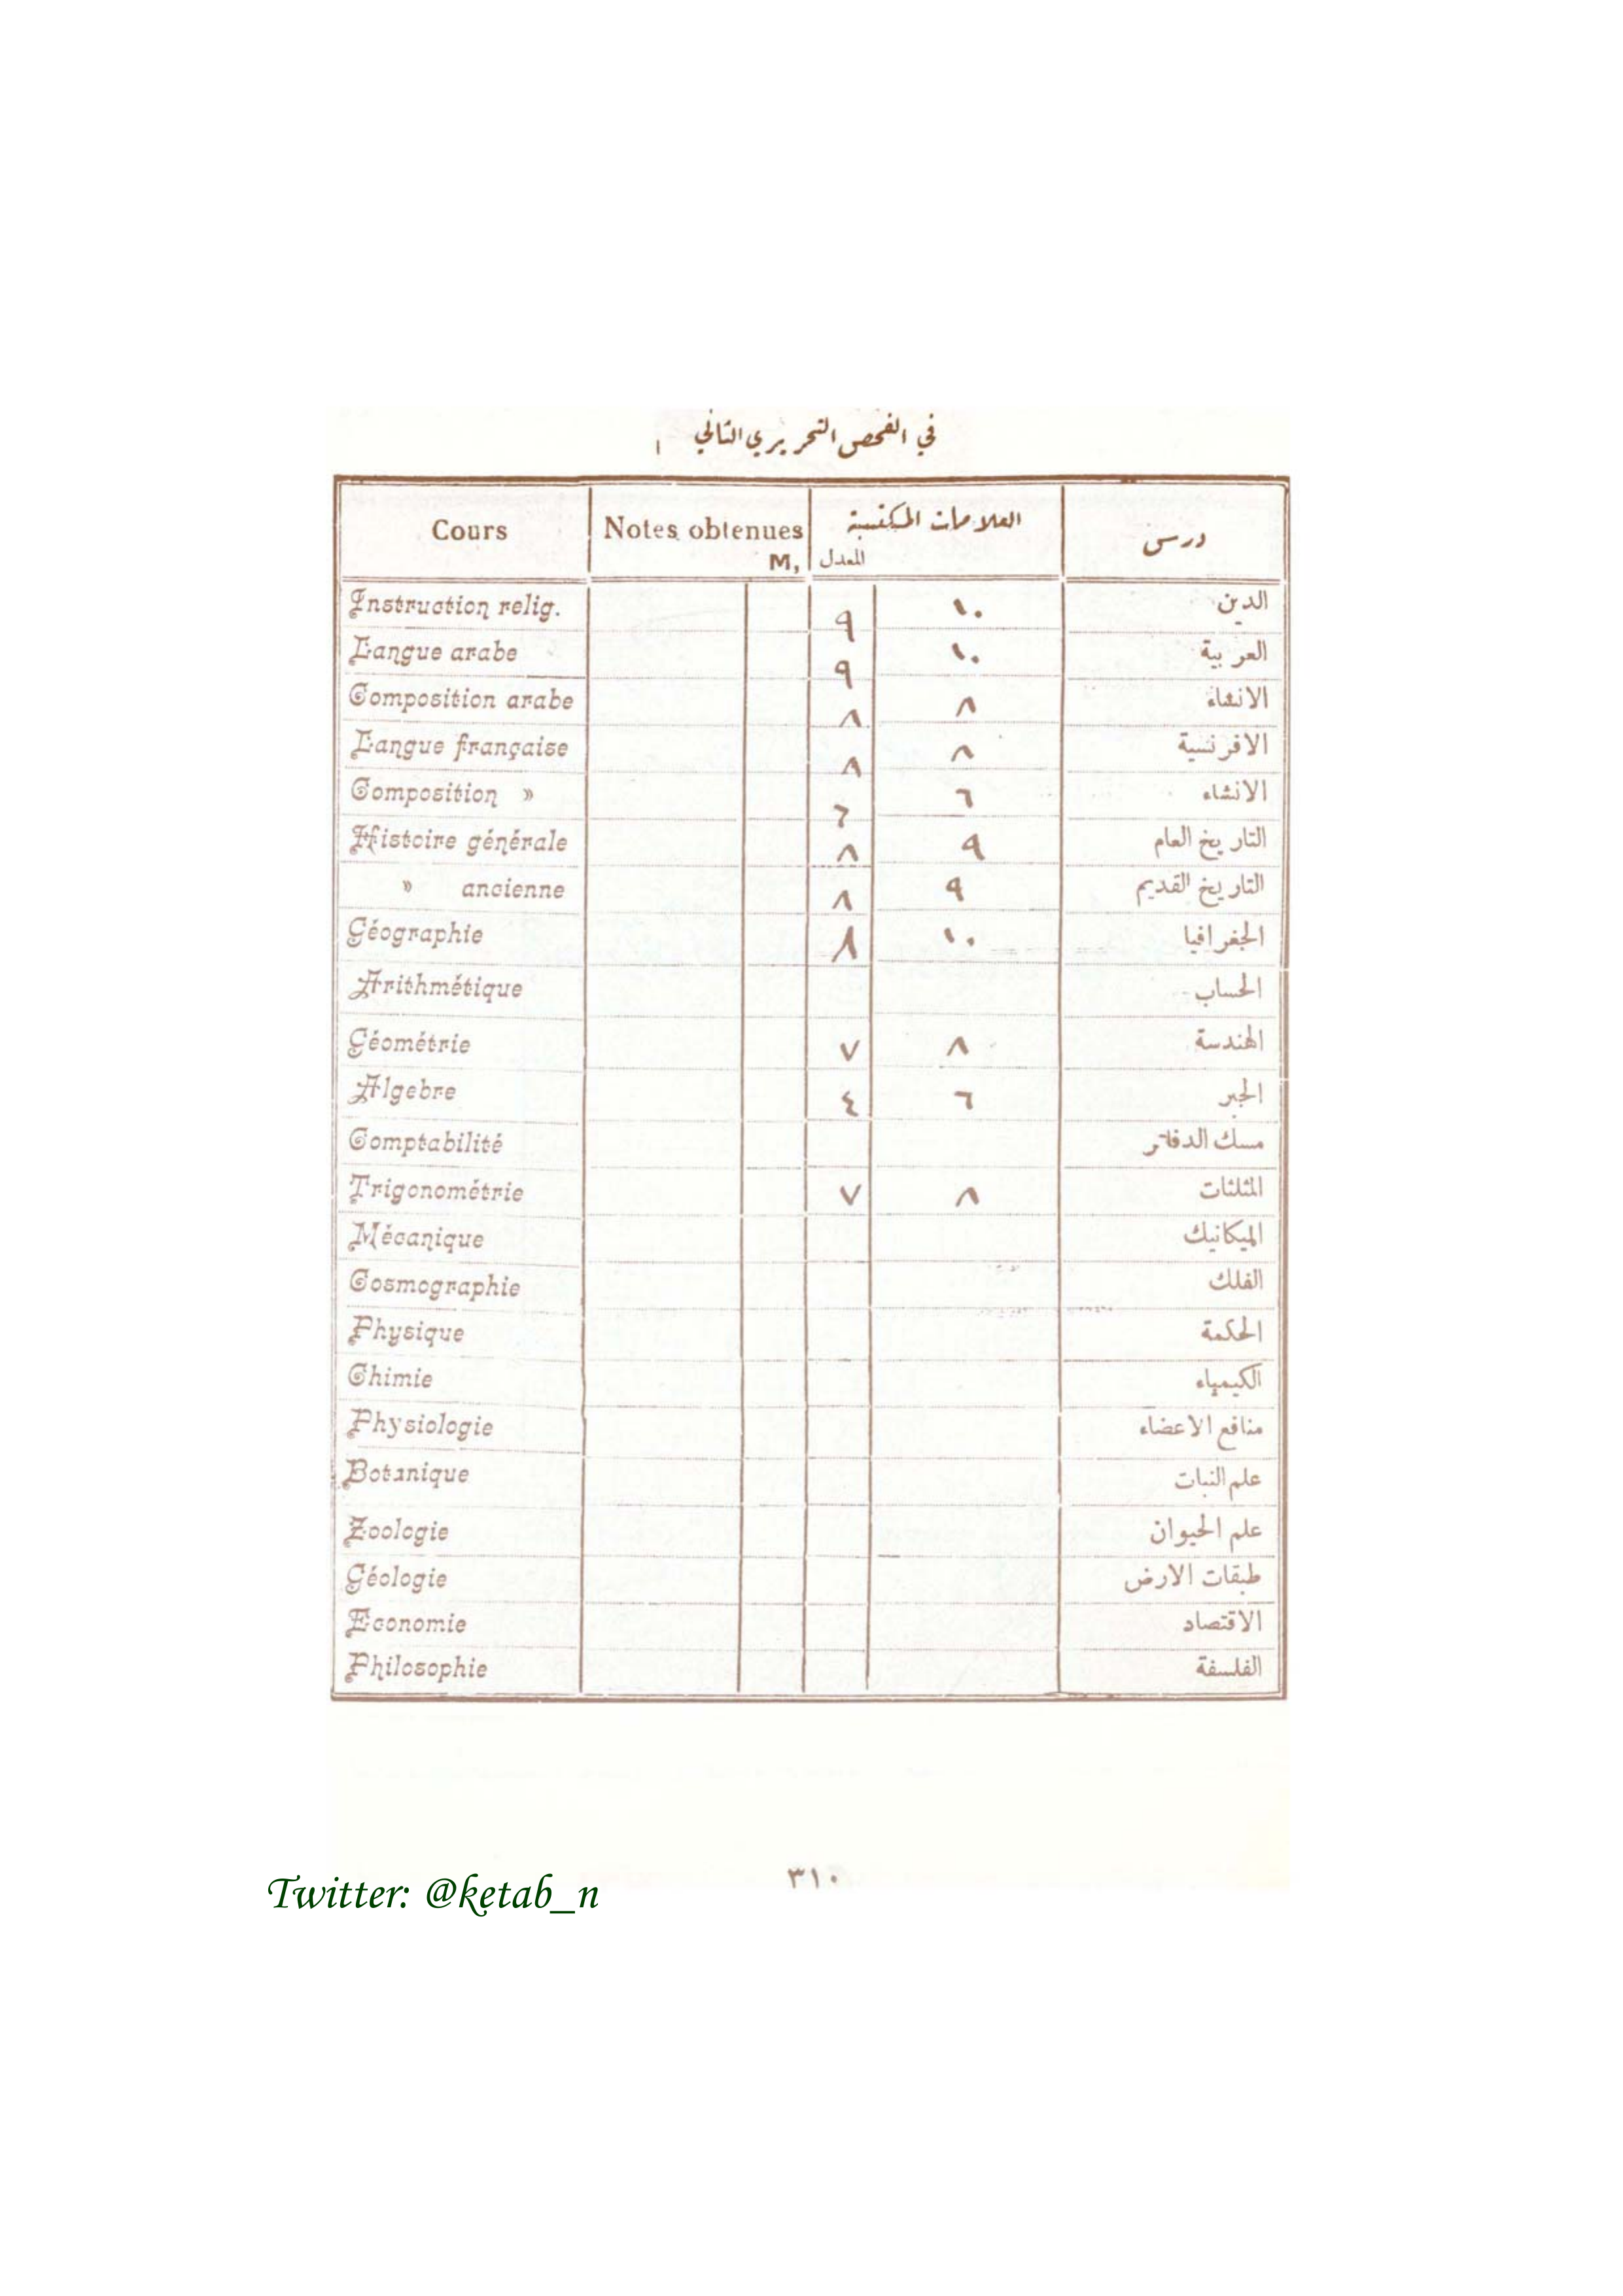 في الفحص التحريري الثاني
Cours Notes obtenues العلامات المكتسبة درس
M, المعدل
Instruction relig. ٩ ١٠ الدين
Langue arabe ٩ ١٠ العربية
Composition arabe ٨ ٨ الانشاء
Langue française ٨ ٨ الافرنسية
Composition » ٦ ٦ الانشاء
Histoire générale ٨ ٩ التاريخ العام
» ancienne ٨ ٩ التاريخ القديم
Géographie ٨ ١٠ الجغرافيا
Arithmétique الحساب
Géométrie ٧ ٨ الهندسة
Algebre ٤ ٦ الجبر
Comptabilité مسك الدفاتر
Trigonométrie ٧ ٨ المثلثات
Mécanique الميكانيك
Cosmographie الفلك
Physique الحكمة
Chimie الكيمياء
Physiologie منافع الاعضاء
Botanique علم النبات
Zoologie علم الحيوان
Géologie طبقات الارض
Economie الاقتصاد
Philosophie الفلسفة
٣١٠
Twitter: @ketab_n